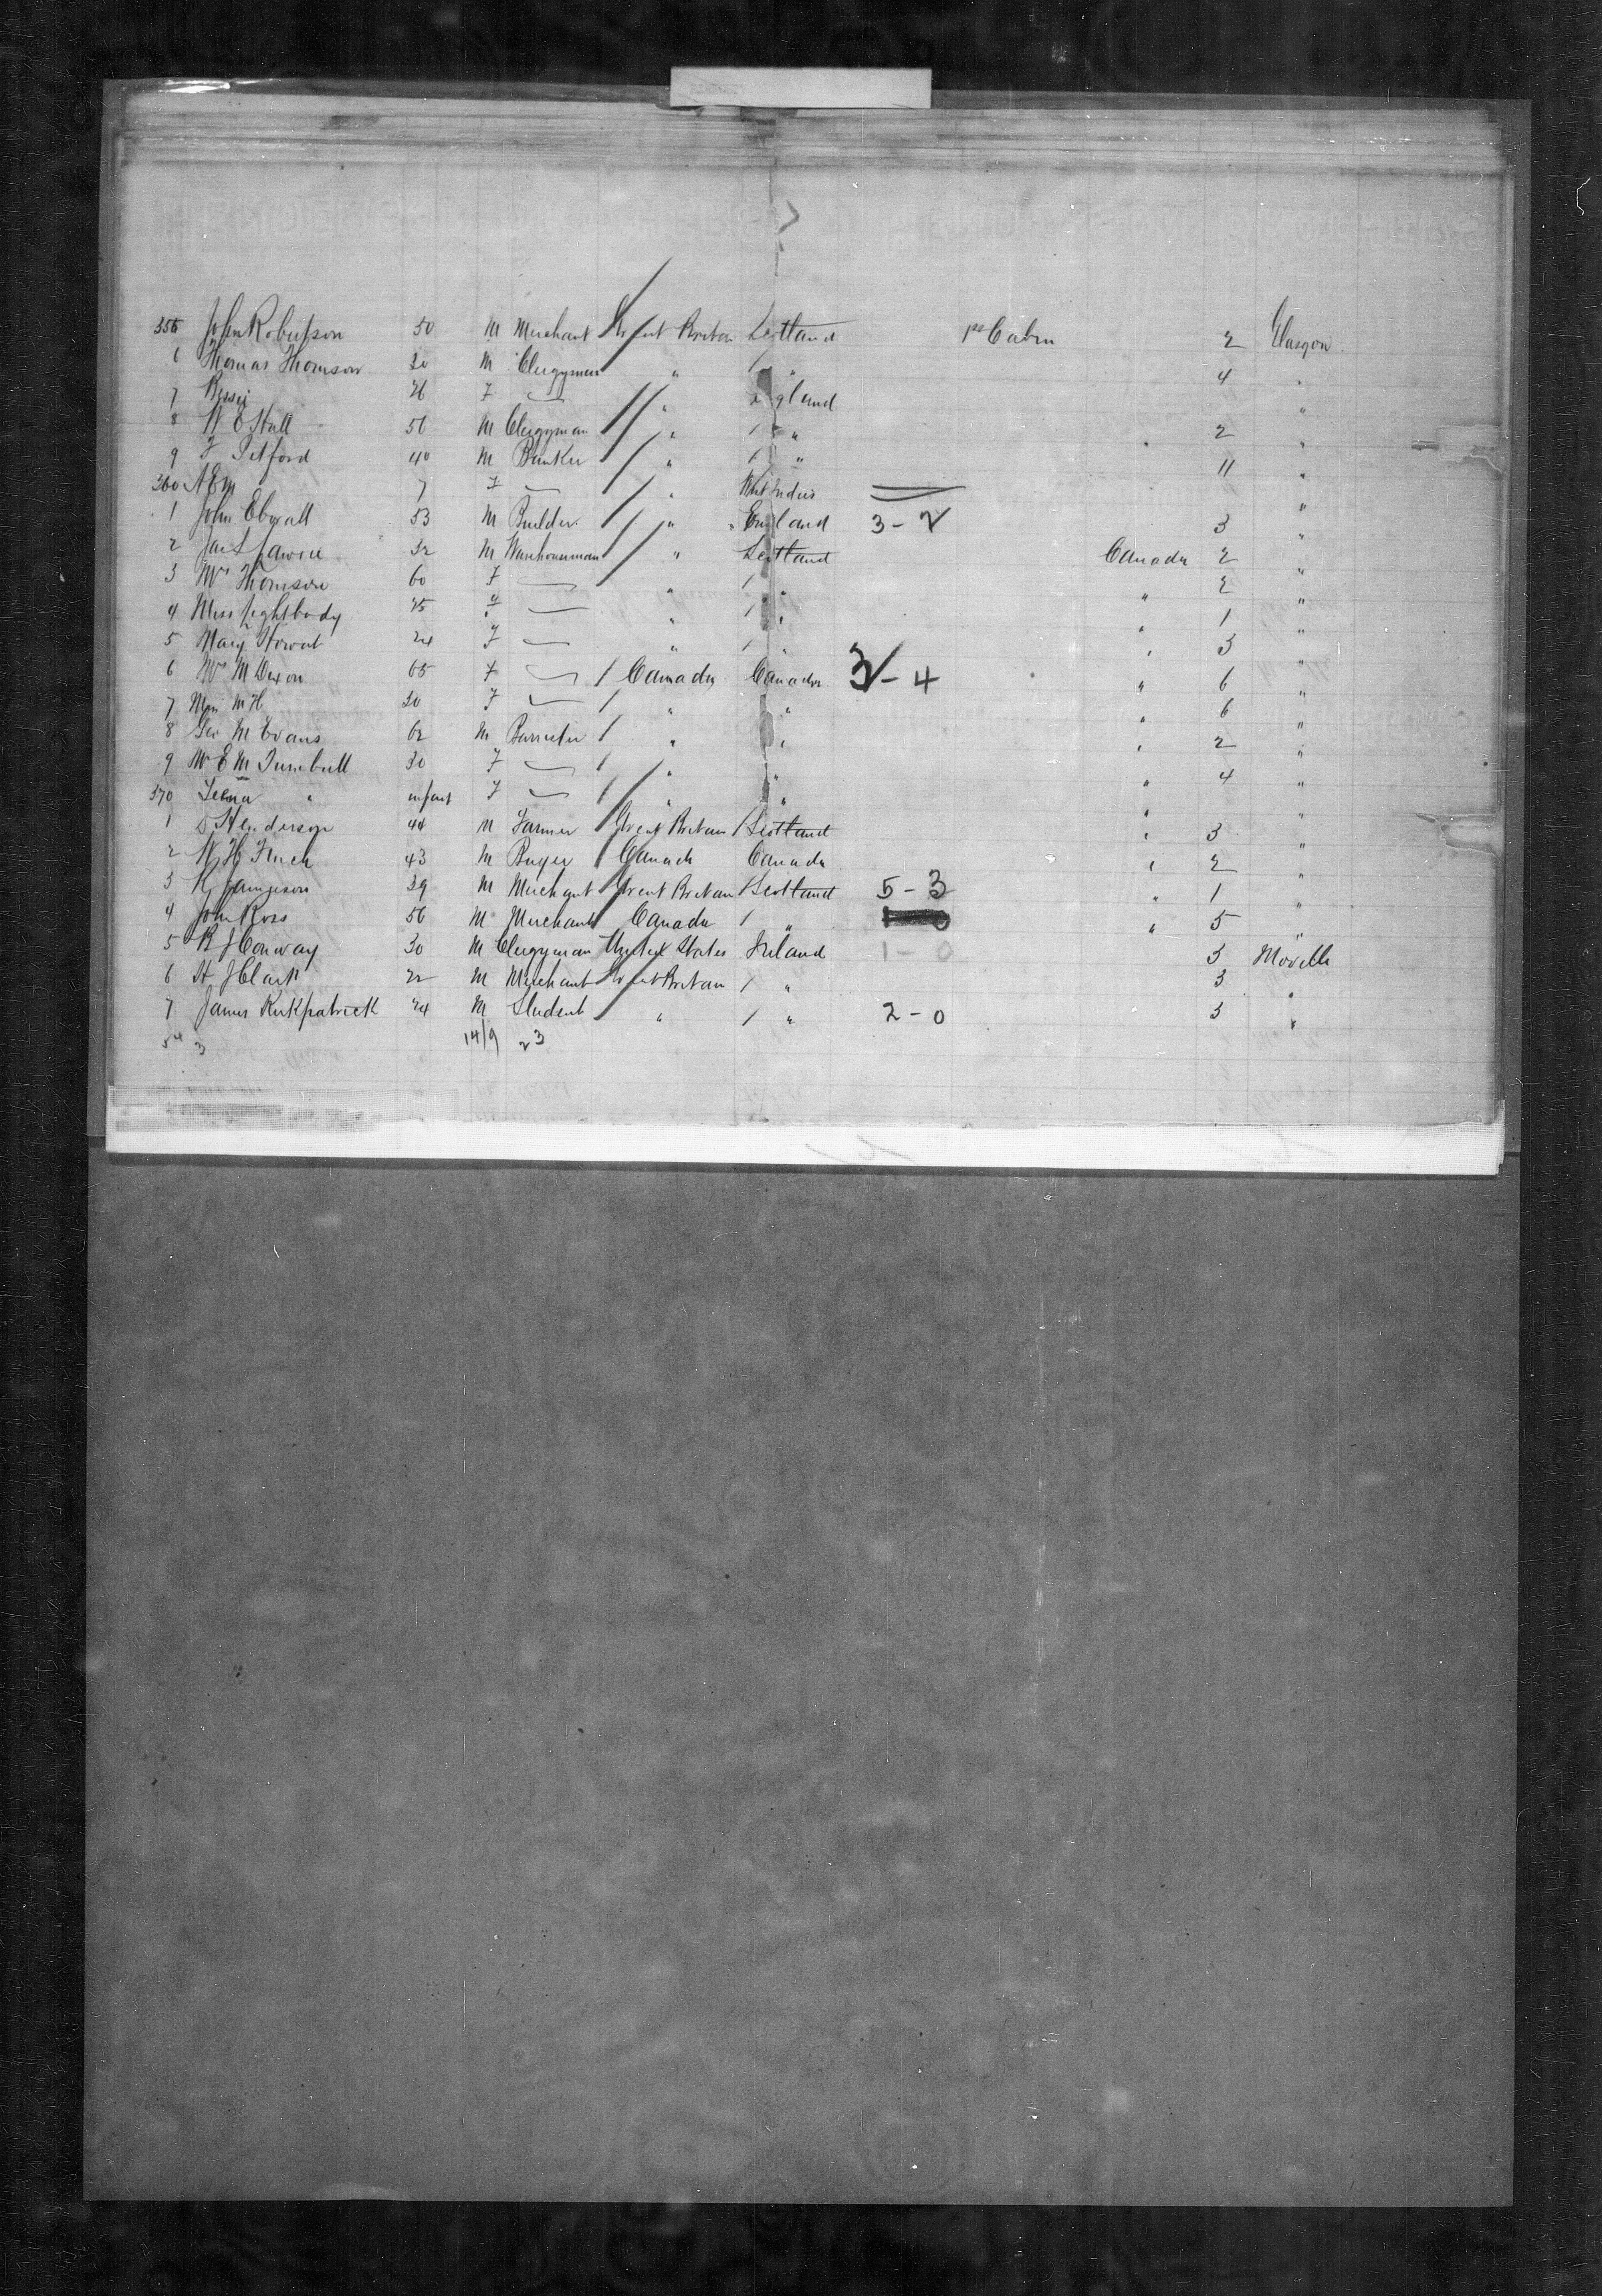 355 John Robertson 50 M Merchant Great Britain Scotland 1st Cabin 2 Glasgow
6 Thomas Thomson 30 M Clergyman " " 4 "
7 Bessie 26 F — " England "
8 W E Hall 56 M Clergyman " " 2 "
9 F Petford 40 M Banker " " 11 "
360 7 F — " West Indies "
1 John 53 M Builder " England 3 - 2 3 "
2 Jas Lawrie 32 M Warehouseman " Scotland Canada 2 "
3 Mrs Thomson 60 F — " " " 2 "
4 Miss Lightbody 25 F — " " " 1 "
5 Mary Howat 24 F — " " " 3 "
6 Mrs M Dixon 65 F — Canada Canada 3 - 4 " 6 "
7 Miss M H 30 F — " " " 6 "
8 Geo M Evans 62 M Barrister " " " 2 "
9 Mrs E M Turnbull 30 F — " " " 4 "
370 " infant F — " " " "
1 D Henderson 44 M Farmer Great Britain Scotland " 3 "
2 W H Finch 43 M Buyer Canada Canada " 2 "
3 R Jamieson 39 M Merchant Great Britain Scotland 5 - 3 " 1 "
4 John Ross 56 M Merchant Canada " " 5 "
5 R J Conway 30 M Clergyman United States Ireland 1 - 0 3 Moville
6 H J Clark 22 M Merchant Great Britain " 3 "
7 James Kirkpatrick 24 M Student " " 2 - 0 3 "
3 14/9 23